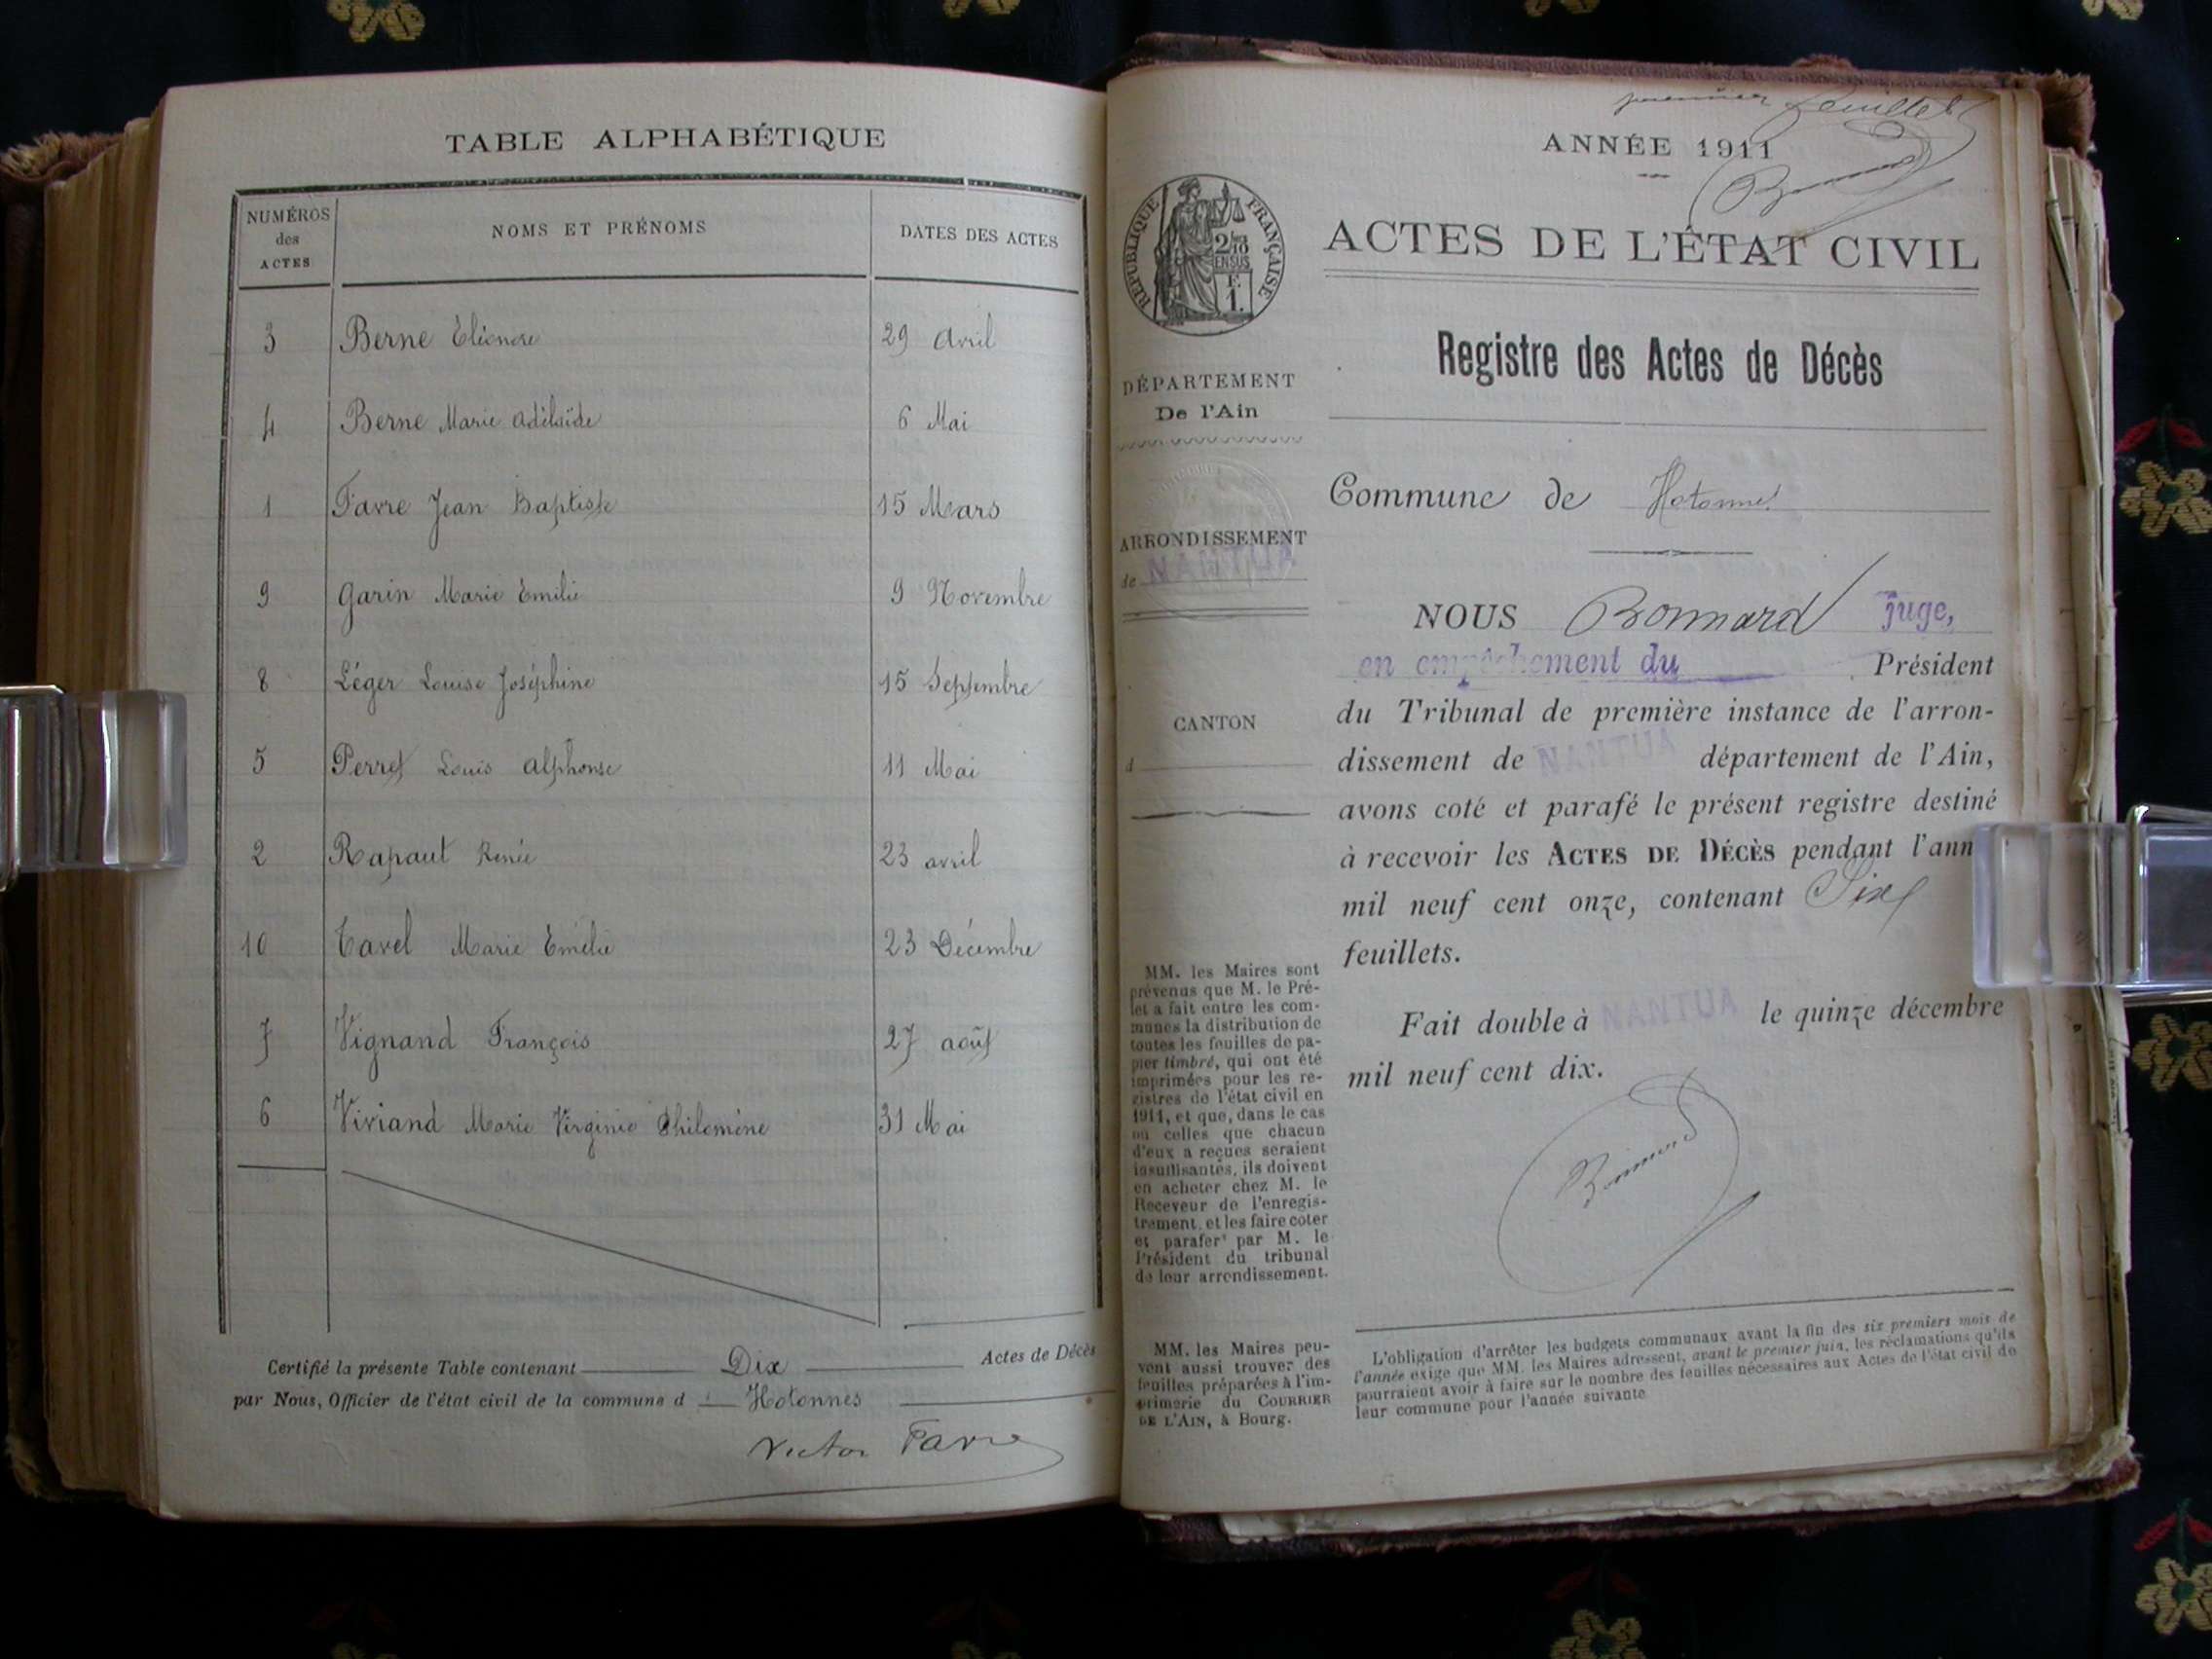 TABLE ALPHABÉTIQUE
NUMÉROS des ACTES
NOMS ET PRÉNOMS
DATES DES ACTES
3 Berne Eléonore 29 Avril
4 Berne Marie Adélaïde 6 Mai
1 Favre Jean Baptiste 15 Mars
9 Garin Marie Emilie 9 Novembre
8 Léger Louise Joséphine 15 Septembre
5 Perret Louis Alphonse 11 Mai
2 Rapaut Renée 23 avril
10 Tavel Marie Emélie 23 Décembre
7 Vignand François 27 août
6 Viviand Marie Virginie Philomène 31 Mai
Certifié la présente Table contenant Dix Actes de Décès
par Nous, Officier de l'état civil de la commune d Hotonnes
Victor Favre
premier feuillet
Bonnard
ANNÉE 1911
ACTES DE L'ÉTAT CIVIL
RÉPUBLIQUE FRANÇAISE
2/10
EN SUS
F.
1.
Registre des Actes de Décès
DÉPARTEMENT
De l'Ain
ARRONDISSEMENT
de NANTUA
CANTON
d
Commune de Hotonnes
NOUS Bonnard Juge,
en empêchement du Président
du Tribunal de première instance de l'arron-
dissement de NANTUA département de l'Ain,
avons coté et parafé le présent registre destiné
à recevoir les ACTES DE DÉCÈS pendant l'ann
mil neuf cent onze, contenant Six
feuillets.
Fait double à NANTUA le quinze décembre
mil neuf cent dix.
Bonnard
MM. les Maires sont
prévenus que M. le Pré-
fet a fait entre les com-
munes la distribution de
toutes les feuilles de pa-
pier timbré, qui ont été
imprimées pour les re-
gistres de l'état civil en
1911, et que, dans le cas
où celles que chacun
d'eux a reçues seraient
insuffisantes, ils doivent
en acheter chez M. le
Receveur de l'enregis-
trement, et les faire coter
et parafer par M. le
Président du tribunal
de leur arrondissement.
MM. les Maires peu-
vent aussi trouver des
feuilles préparées à l'im-
primerie du COURRIER
DE L'AIN, à Bourg.
L'obligation d'arrêter les budgets communaux avant la fin des six premiers mois de
l'année exige que MM. les Maires adressent, avant le premier juin, les réclamations qu'ils
pourraient avoir à faire sur le nombre des feuilles nécessaires aux Actes de l'état civil de
leur commune pour l'année suivante